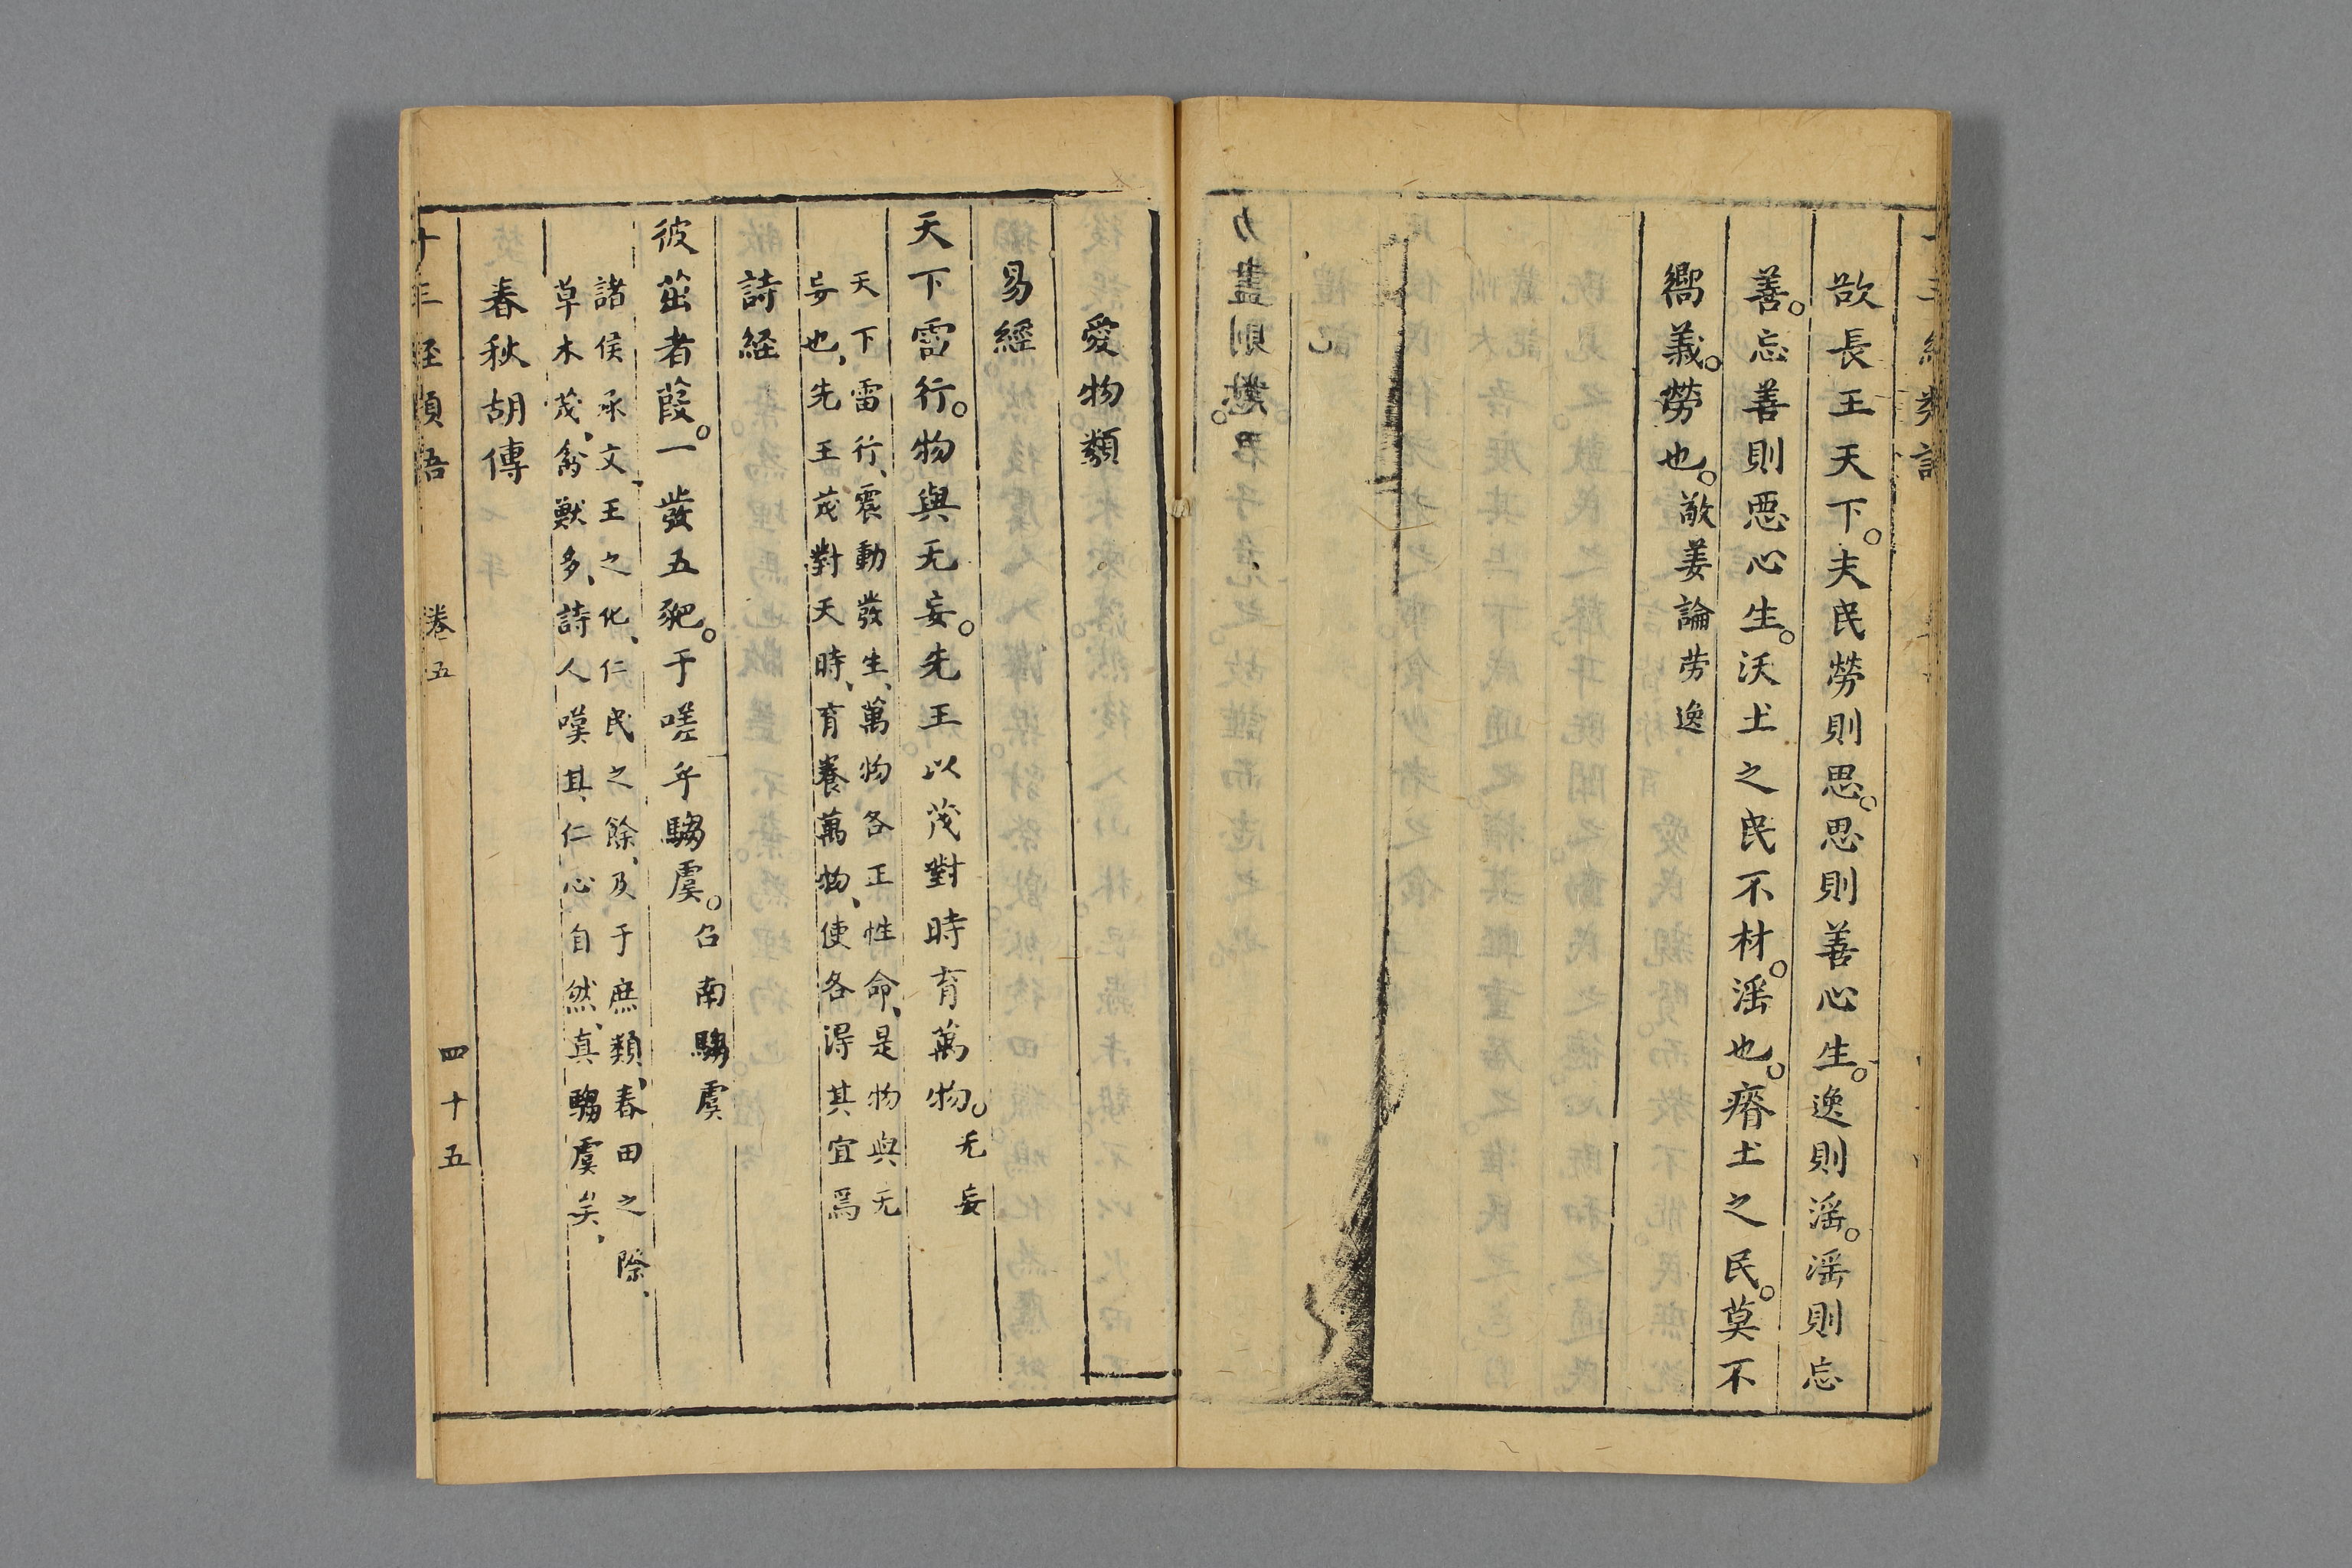 歆長王天下。夫民勞則思。思則善心生。逸則滛。滛則忘
善。忘善則惡心生。沃土之民不材。滛也。瘠土之民。莫不
嚮義。勞也。敬姜論劳逸
愛物類
易經
天下雷行。物與无妄。先王以茂對時育萬物。无妄
天下雷行、震動發生、萬物各正性命、是物與无
妄也、先王茂對天時、育養萬物、使各得其宜焉
詩経
彼茁者葭。一發五豝。于嗟乎騶虞。召南騶虞
諸侯承文王之化、仁民之餘、及于庶類、春田之際、
草木茂、禽獸多、詩人嘆其仁心自然、真騶虞矣、
春秋胡傳
十三経類語 卷五 四十五